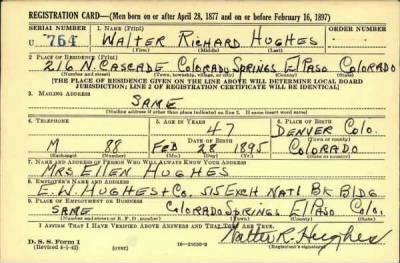 REGISTRATION CARD—(Men born on or after April 28, 1877 and on or before February 16, 1897)
SERIAL NUMBER 1. NAME (Print)
U 764 WALTER RICHARD HUGHES
(First) (Middle) (Last)
2. PLACE OF RESIDENCE (Print)
216 N. CASCADE COLORADO SPRINGS EL PASO COLORADO
(Number and street) (Town, township, village, or city) (County) (State)
[THE PLACE OF RESIDENCE GIVEN ON THE LINE ABOVE WILL DETERMINE LOCAL BOARD
JURISDICTION; LINE 2 OF REGISTRATION CERTIFICATE WILL BE IDENTICAL]
3. MAILING ADDRESS
SAME
[Mailing address if other than place indicated on line 2. If same insert word same]
4. TELEPHONE 5. AGE IN YEARS 6. PLACE OF BIRTH
47 DENVER COLO.
DATE OF BIRTH (Town or county)
M 88 FEB 28 1895 COLORADO
(Exchange) (Number) (Mo.) (Day) (Yr.) (State or country)
7. NAME AND ADDRESS OF PERSON WHO WILL ALWAYS KNOW YOUR ADDRESS
MRS. ELLEN HUGHES
8. EMPLOYER'S NAME AND ADDRESS
E. W. HUGHES & CO. 515 EXCH NATL BK BLDG
9. PLACE OF EMPLOYMENT OR BUSINESS
SAME COLORADO SPRINGS EL PASO COLO.
(Number and street or R. F. D. number) (Town) (County) (State)
I AFFIRM THAT I HAVE VERIFIED ABOVE ANSWERS AND THAT THEY ARE TRUE.
D. S. S. Form 1 Walter R. Hughes
(Revised 4-1-42) (over) (Registrant's signature)